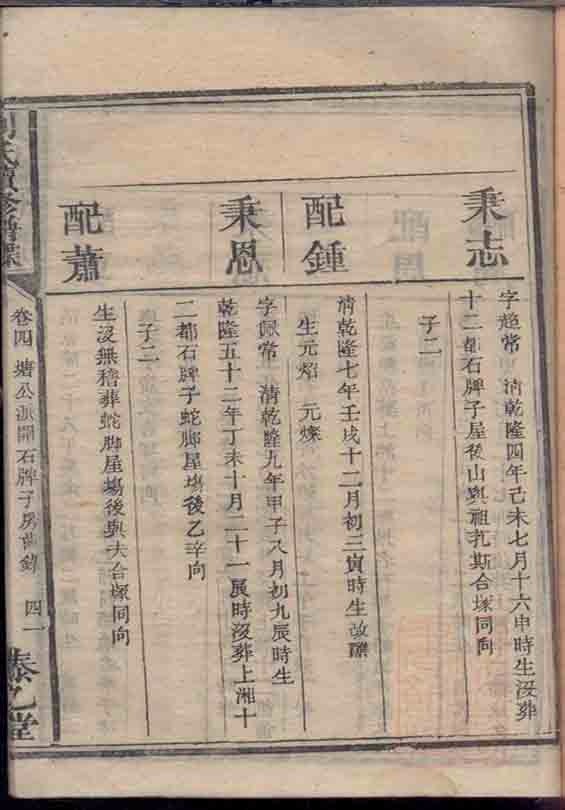 秉志
字超常 清乾隆四年己未七月十六申時生沒葬
十二都石牌子屋後山與祖扎斯合塚同向
子二
配鍾
清乾隆七年壬戌十二月初三寅時生故醮
生元焰 元燦
秉恩
字佩常 清乾隆九年甲子八月初九辰時生
乾隆五十二年丁未十月二十一辰時沒葬上湘十
二都石牌子蛇脚屋塲後乙辛向
子二
配蕭
生沒無稽葬蛇脚屋塲後與夫合塚同向
氏續修譜
卷四 塘公派開石牌子房齒錄 四一
泰乙堂